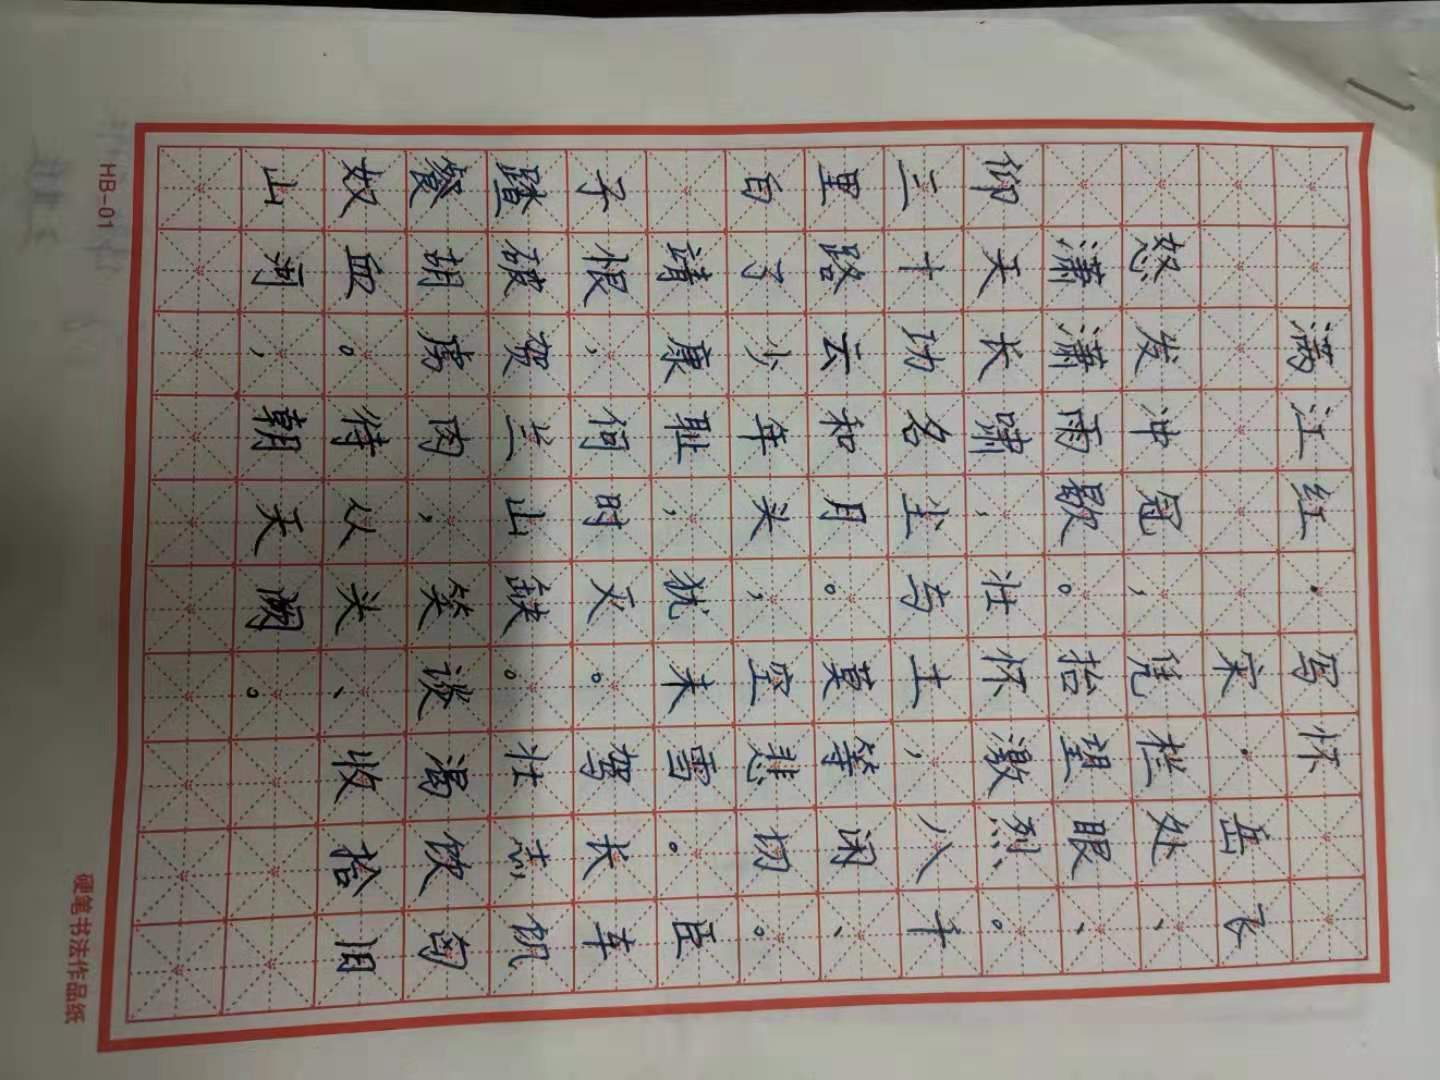 满江红·写怀
宋·岳飞
怒发冲冠，凭栏处、
潇潇雨歇。抬望眼、
仰天长啸，壮怀激烈。
三十功名尘与土，八千
里路云和月。莫等闲、
白了少年头，空悲切。
靖康耻，犹未雪。臣
子恨，何时灭。驾长车
踏破贺兰山缺。壮志饥
餐胡虏肉，笑谈渴饮匈
奴血。待从头、收拾旧
山河，朝天阙。
HB-01
硬笔书法作品纸